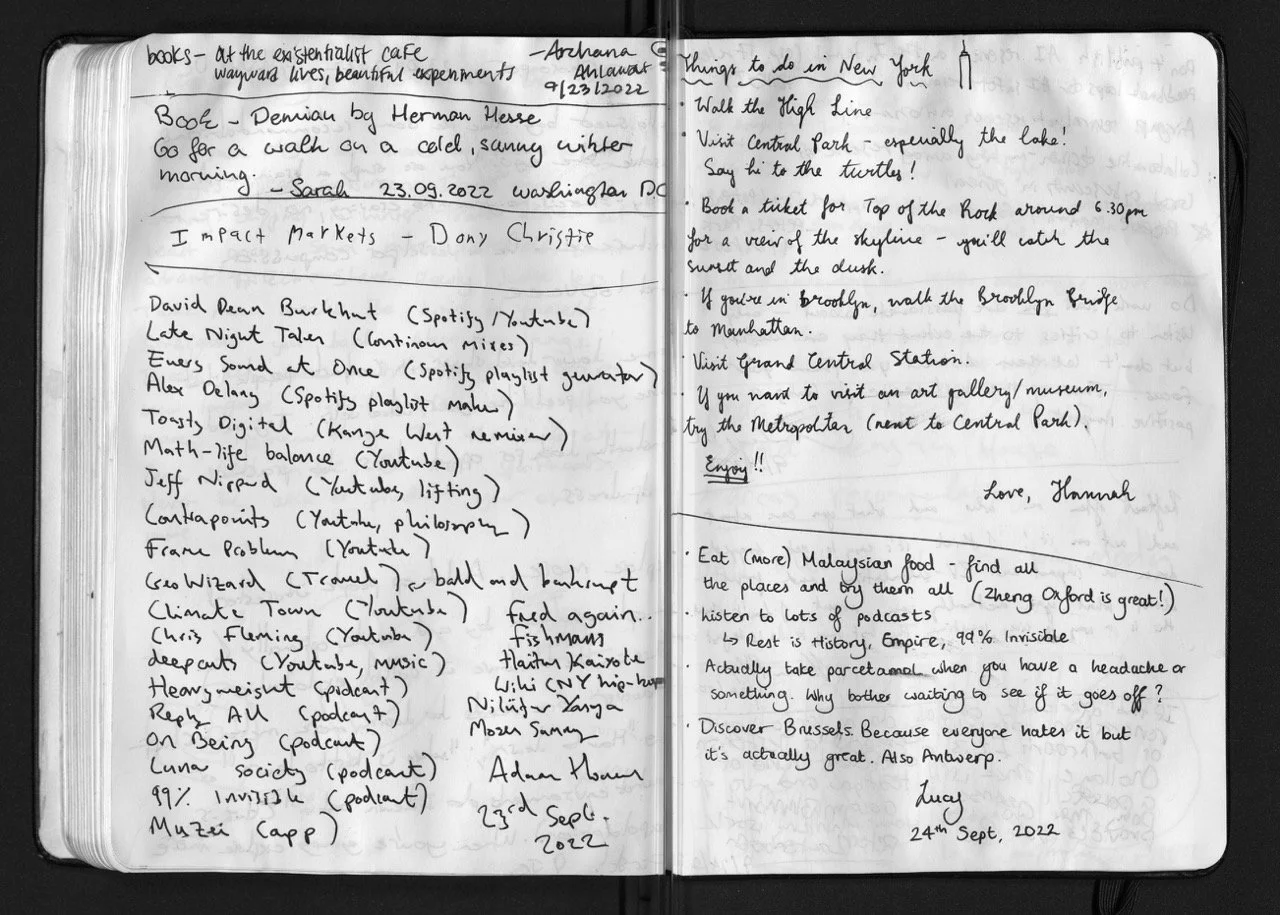 books – at the existentialist cafe
wayward lives, beautiful experiments
– Archana
Ahlawat
9/23/2022
Book – Demian by Herman Hesse
Go for a walk on a cold, sunny winter
morning.
– Sarah 23.09.2022 Washington DC
Impact Markets – Dony Christie
David Dean Burkhart (Spotify/Youtube)
Late Night Tales (Continous mixes)
Every Sound at Once (Spotify playlist generator)
Alex Delany (Spotify playlist maker)
Toasty Digital (Kanye West remixer)
Math-life balance (Youtube)
Jeff Nippard (Youtube, lifting)
Contrapoints (Youtube, philosophy)
Frame Problem (Youtube)
GeoWizard (Travel), bald and bankrupt
Climate Town (Youtube)
Chris Fleming (Youtube)
deepcuts (Youtube, music)
Heavyweight (podcast)
Reply All (podcast)
On Being (podcast)
Lunar society (podcast)
99% Invisible (podcast)
Muzei (app)
Fred again..
Fishmans
Haitus Kaiyote
Wiki (NY hip-hop
Nilüfer Yanya
Moses Sumney
Adam
23rd Sept.
2022
Things to do in New York
· Walk the High Line
· Visit Central Park – especially the lake!
Say hi to the turtles!
· Book a ticket for Top of the Rock around 6.30pm
for a view of the skyline – you'll catch the
sunset and the dusk.
· If you're in brooklyn, walk the Brooklyn Bridge
to Manhattan.
· Visit Grand Central Station.
· If you want to visit an art gallery/museum,
try the Metropolitan (next to Central Park).
Enjoy!!
Love, Hannah
· Eat (more) Malaysian food – find all
the places and try them all (Zheng Oxford is great!)
· Listen to lots of podcasts
↳ Rest is History, Empire, 99% Invisible
· Actually take parcetamol when you have a headache or
something. Why bother waiting to see if it goes off?
· Discover Brussels. Because everyone hates it but
it's actually great. Also Antwerp.
Lucy
24th Sept, 2022